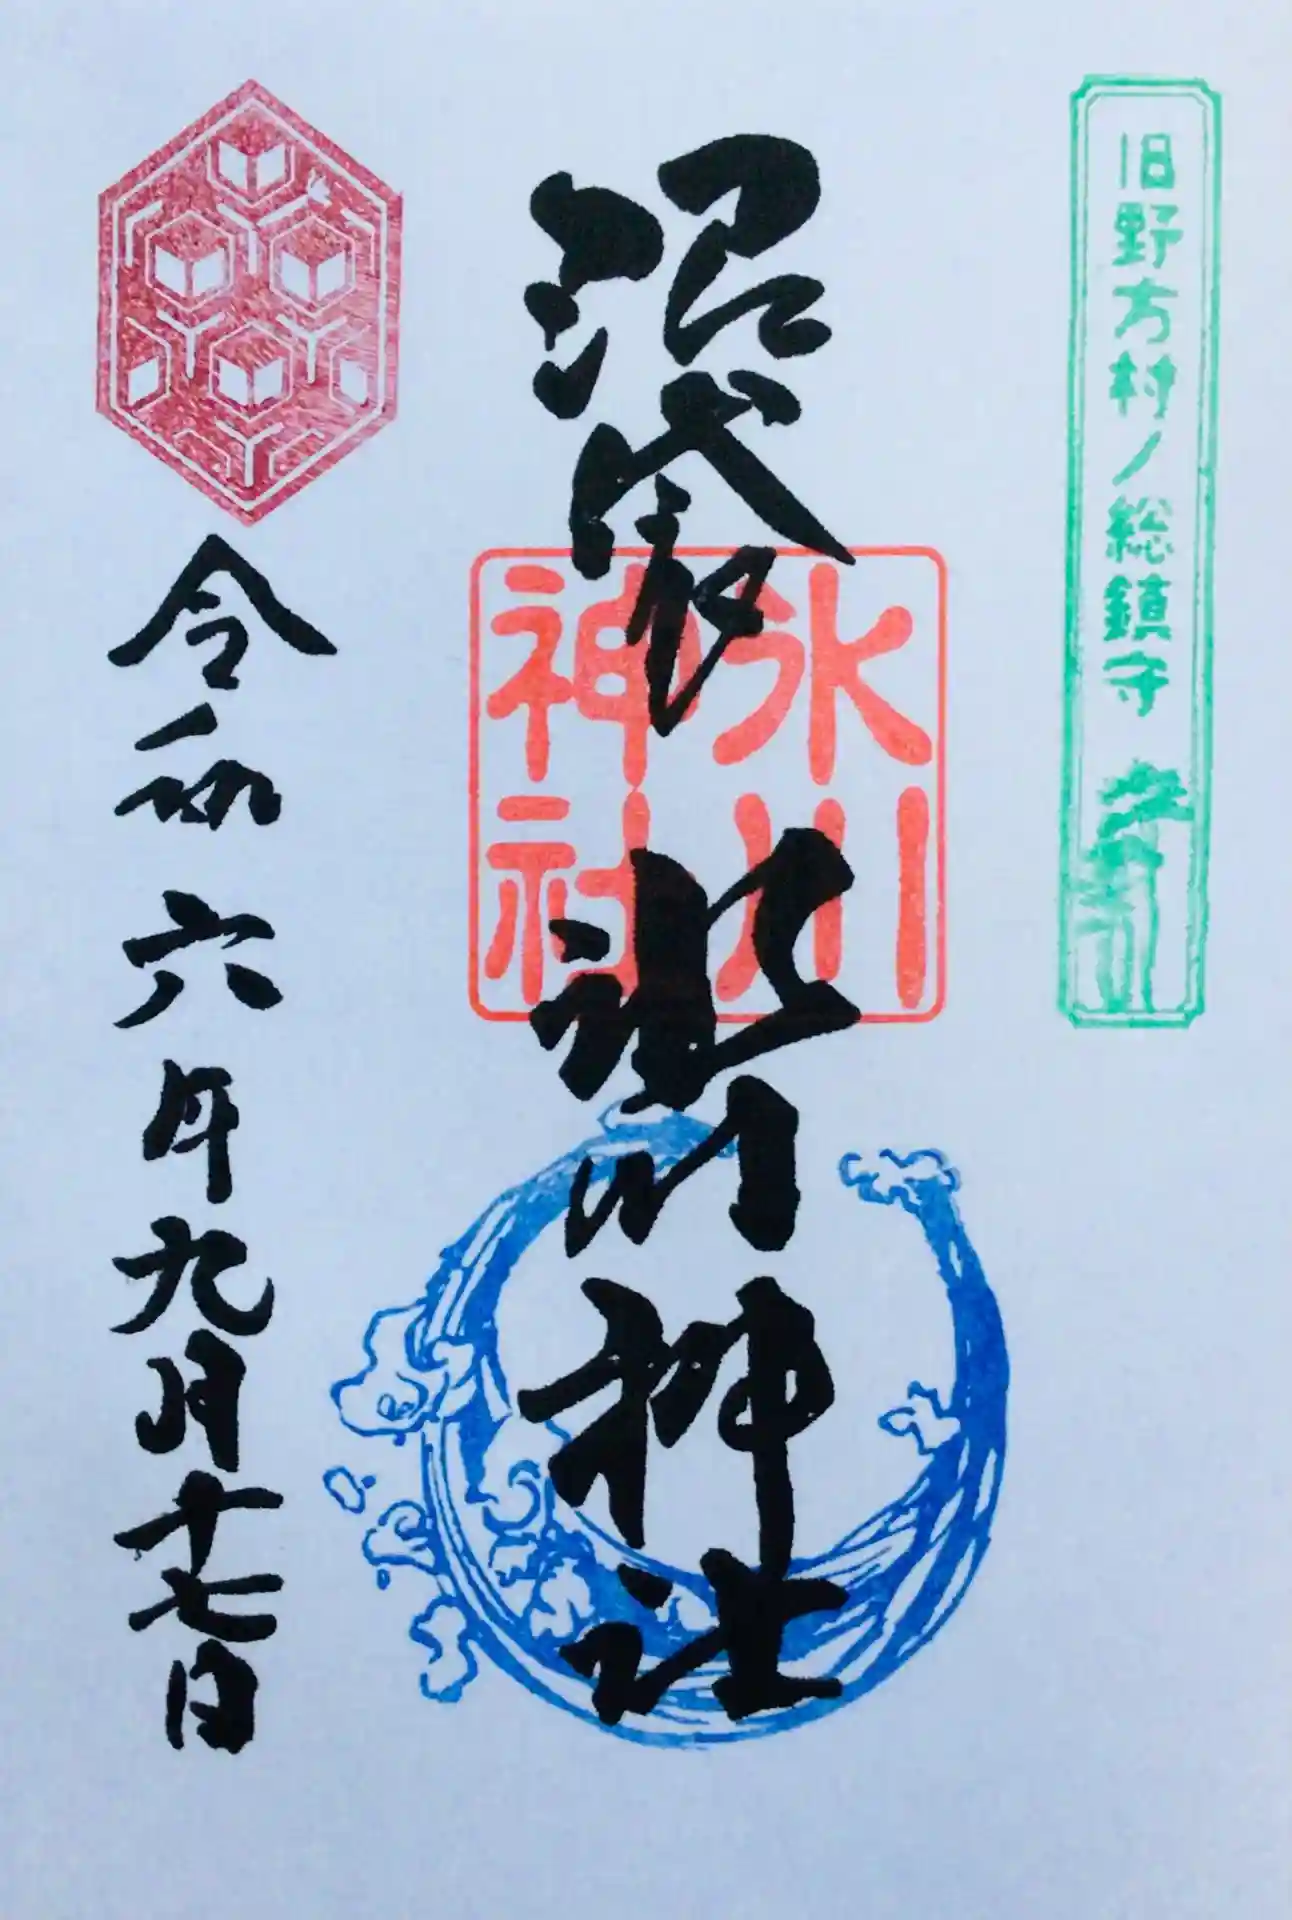 旧野方村ノ総鎮守
沼袋氷川神社
氷川
神社
令和六年九月十七日